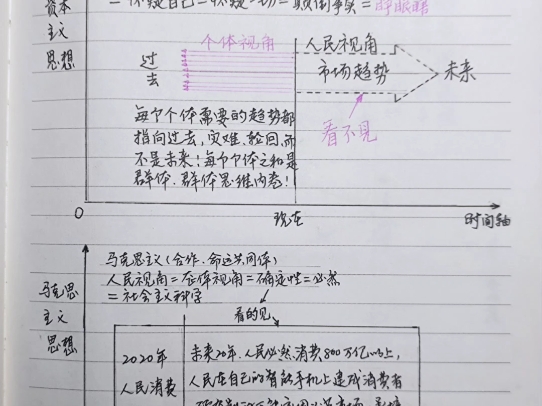 资本
主义
思想
=怀疑自己=怀疑一切=颠倒事实=
个体视角
人民视角
过去
市场趋势
未来
看不见
每个个体需要的趋势都
指向过去,灾难、轮回,而
不是未来!每个个体之和是
群体.群体思维内卷!
0
现在
时间轴
马克思主义(合作.命运共同体)
人民视角=整体视角=确定性=必然
=社会主义科学
看的见
马克思
主义
思想
2020年
人民消费
未来20年.人民必然消费800万亿以上,
人民在自己的智能手机上造成消费者